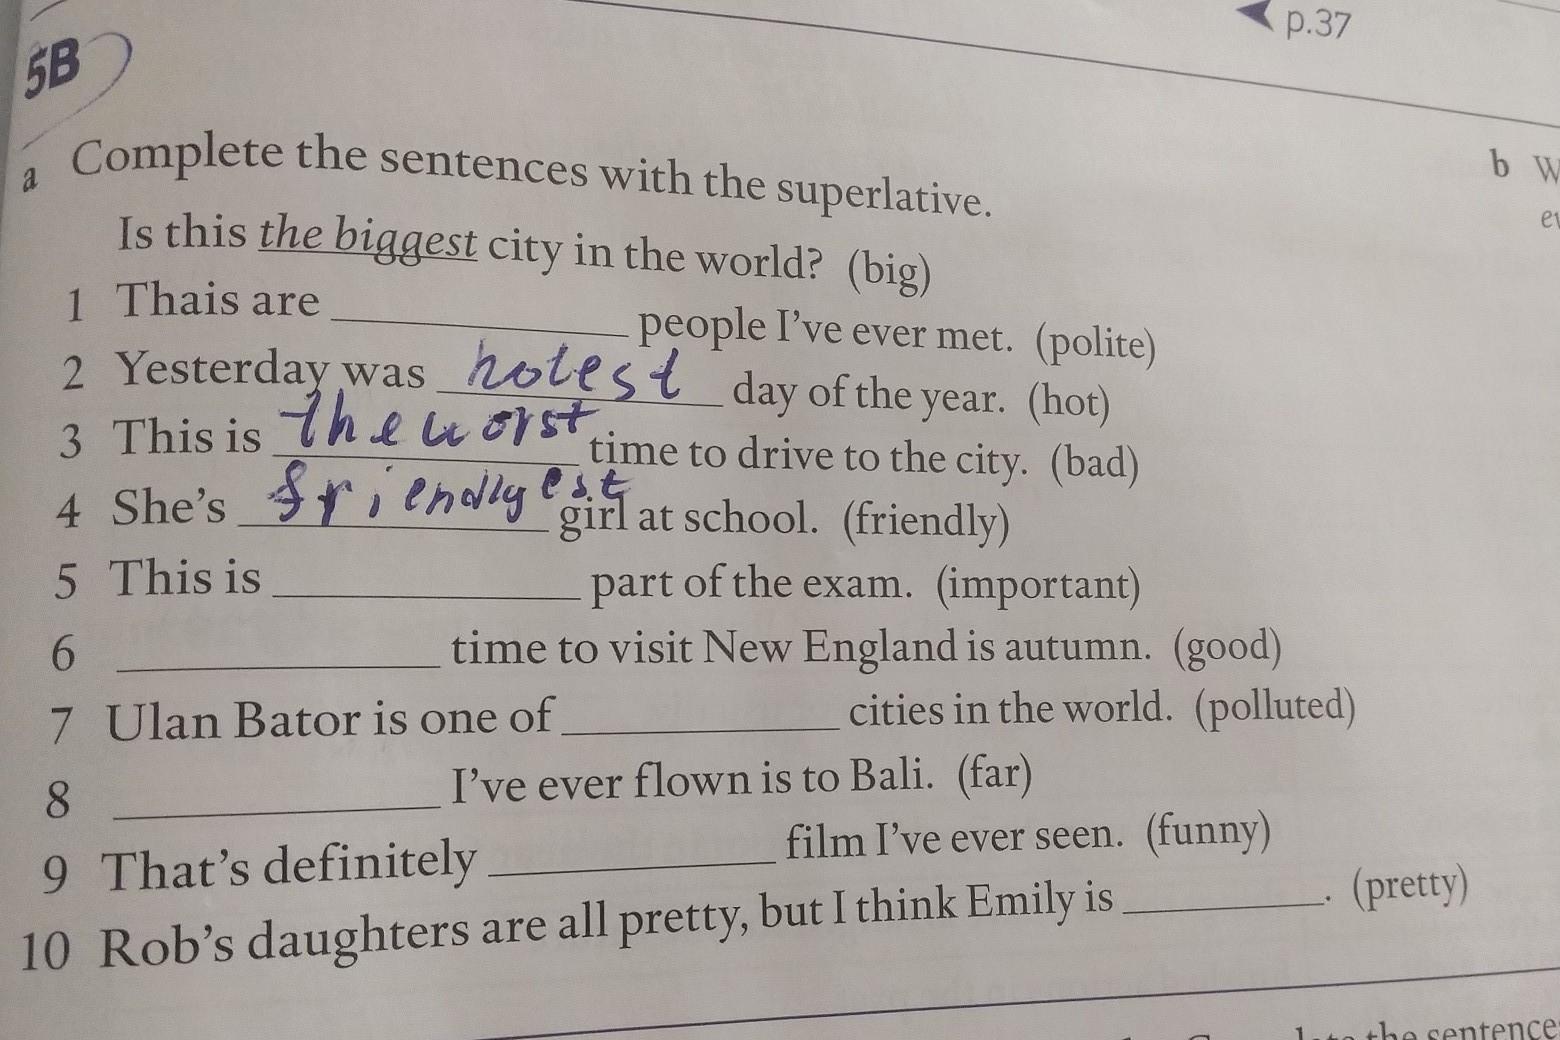 p.37
5B
a Complete the sentences with the superlative.
Is this the biggest city in the world? (big)
1 Thais are ______ people I've ever met. (polite)
2 Yesterday was hotest day of the year. (hot)
3 This is the worst time to drive to the city. (bad)
4 She's friendlyest girl at school. (friendly)
5 This is ______ part of the exam. (important)
6 ______ time to visit New England is autumn. (good)
7 Ulan Bator is one of ______ cities in the world. (polluted)
8 ______ I've ever flown is to Bali. (far)
9 That's definitely ______ film I've ever seen. (funny)
10 Rob's daughters are all pretty, but I think Emily is ______. (pretty)
b
the sentence